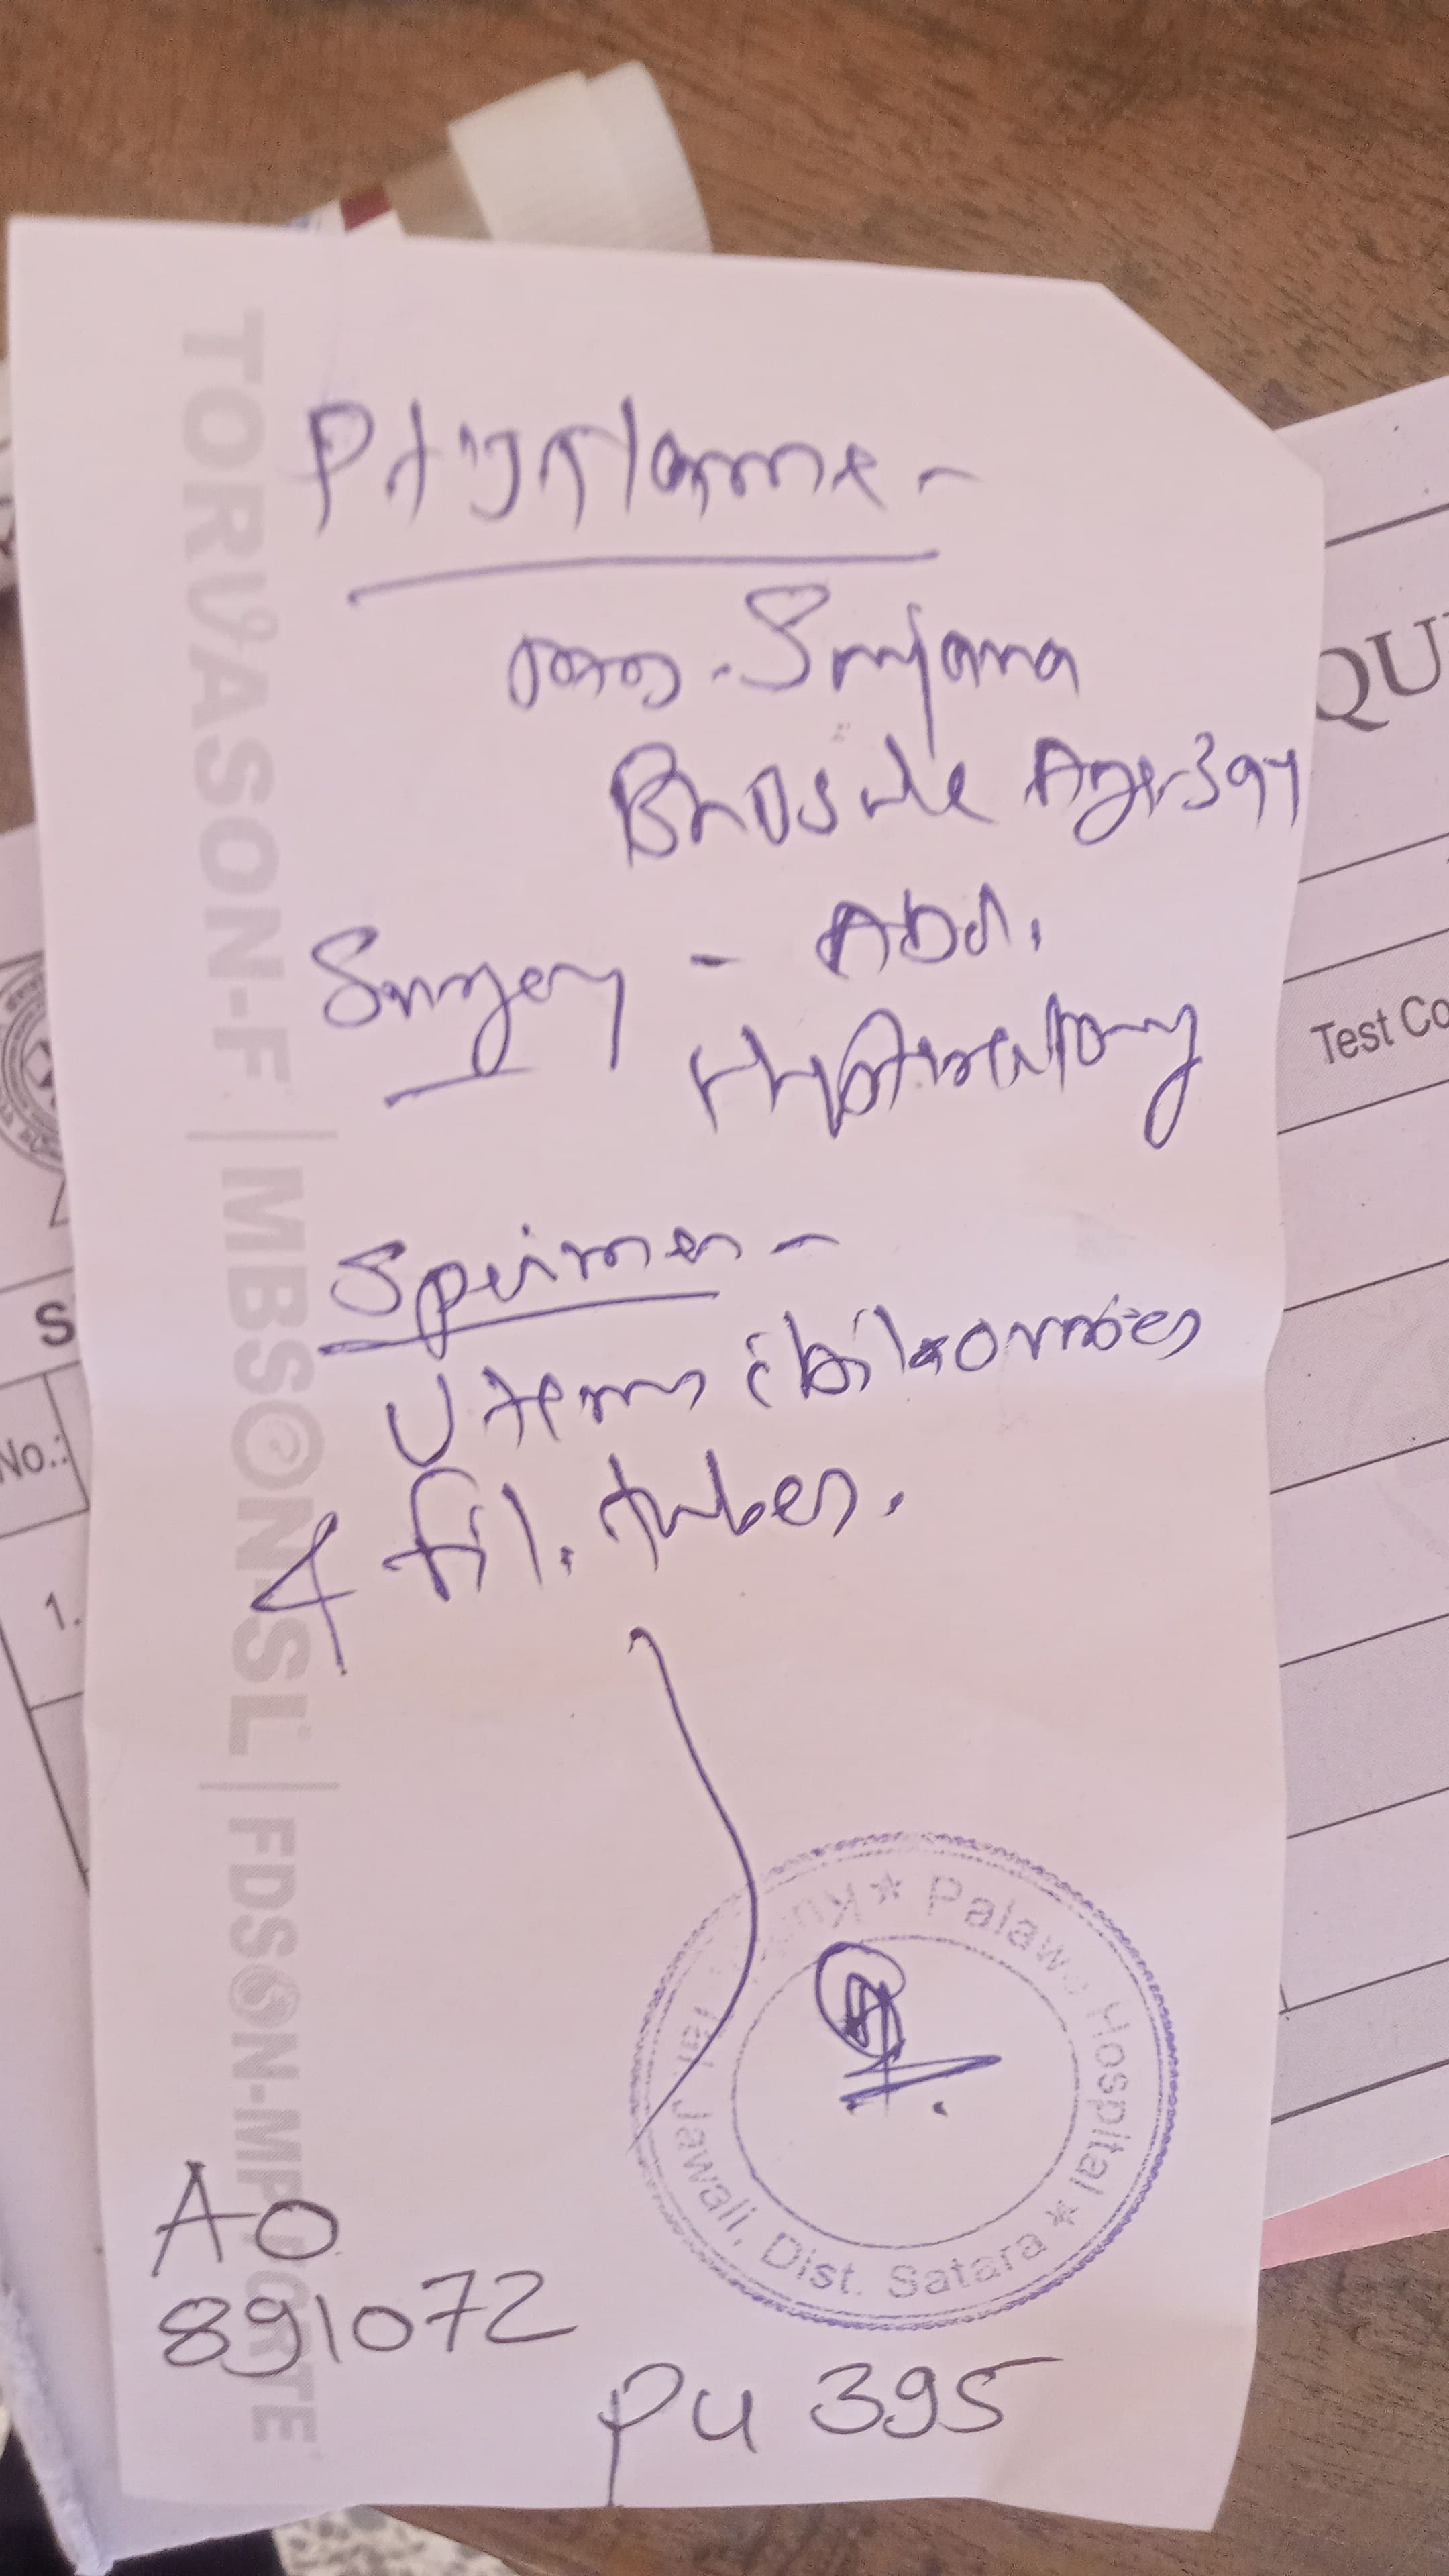 Pt. Name -
Surjana
Bhosale Age-39y
Surgery - Abd.
Hysterectomy
Specimen -
Uterus c bil ovaries
& fil. tubes.
Palawe Hospital
Tal. Jawali, Dist. Satara
AO
891072
PU 395
TORVASON-F | MBSON-SL | FDSON-MP FORTE
QU
Test Co
S
No.:
1.